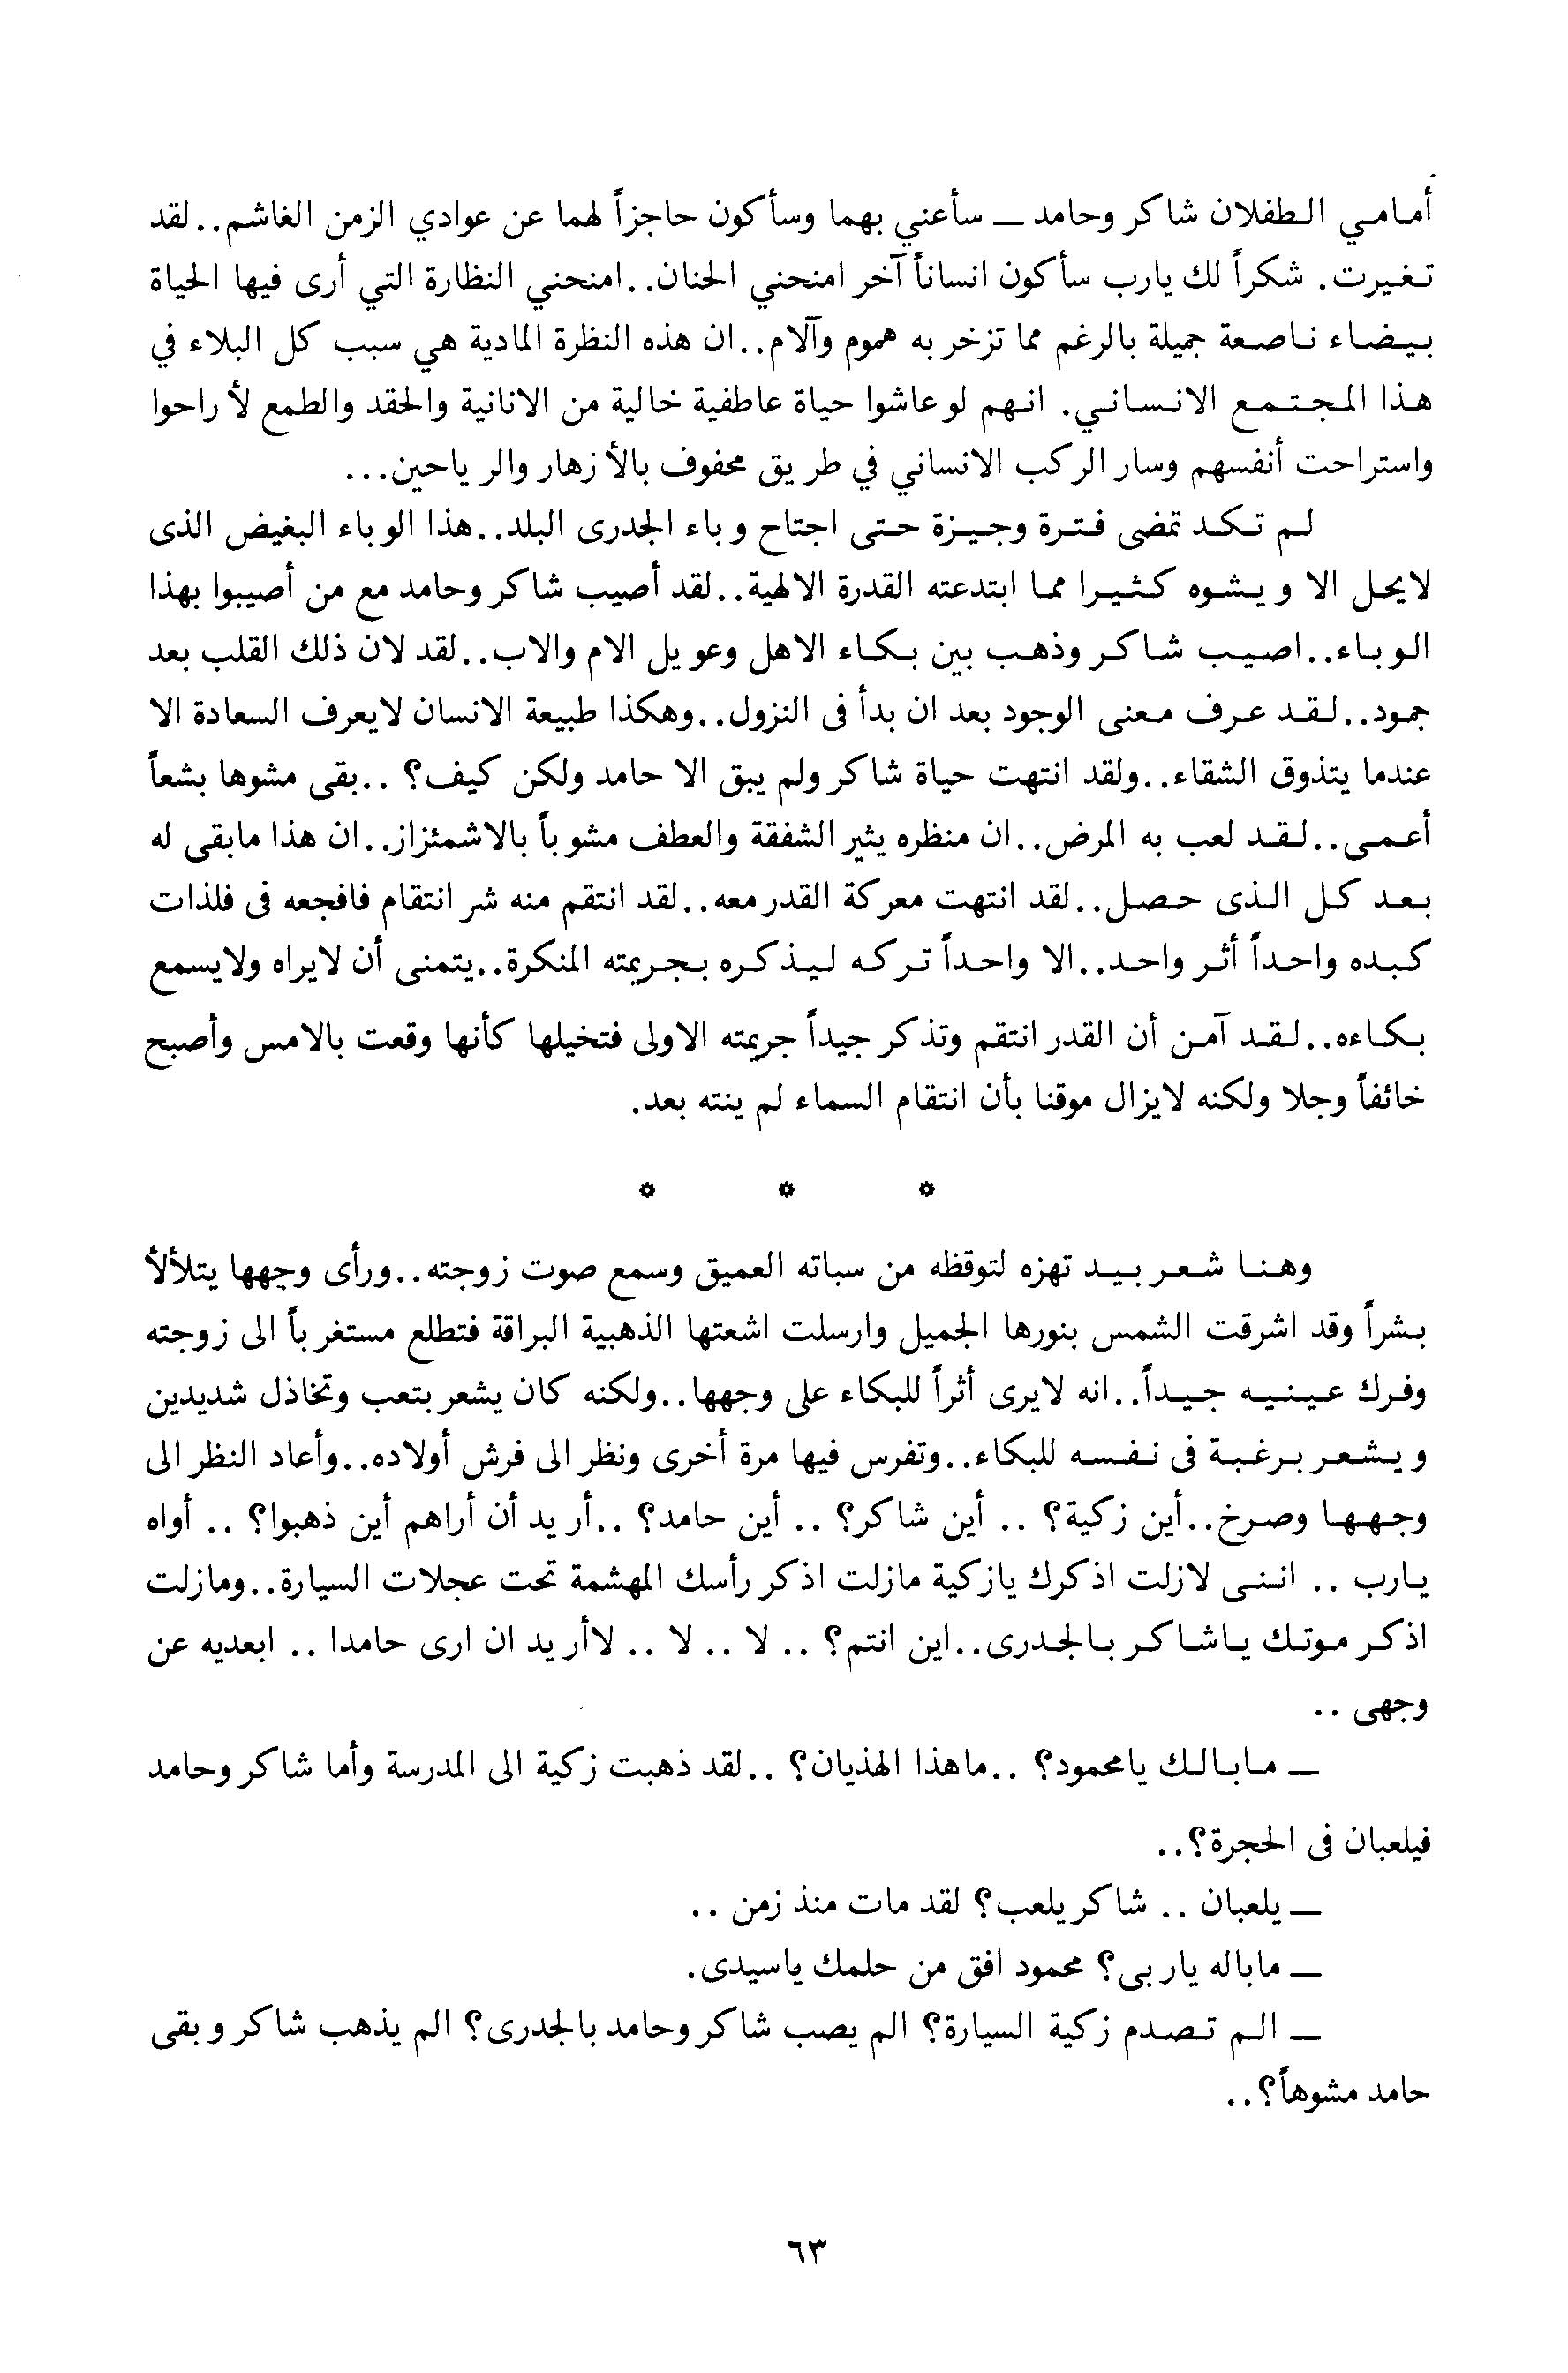 أمامي الطفلان شاكر وحامد — سأعني بهما وسأكون حاجزاً لهما عن عوادي الزمن الغاشم..لقد
تغيرت. شكراً لك يارب سأكون انساناً آخر امنحني الحنان..امنحني النظارة التي أرى فيها الحياة
بيضاء ناصعة جميلة بالرغم مما تزخر به هموم وآلام..ان هذه النظرة المادية هي سبب كل البلاء في
هذا المجتمع الانساني. انهم لو عاشوا حياة عاطفية خالية من الانانية والحقد والطمع لأ راحوا
واستراحت أنفسهم وسار الركب الانساني في طريق محفوف بالأ زهار والرياحين...
لم تكد تمضى فترة وجيزة حتى اجتاح وباء الجدرى البلد..هذا الوباء البغيض الذى
لايحل الا ويشوه كثيرا مما ابتدعته القدرة الالهية..لقد أصيب شاكر وحامد مع من أصيبوا بهذا
الوباء..اصيب شاكر وذهب بين بكاء الاهل وعويل الام والاب..لقد لان ذلك القلب بعد
جمود..لقد عرف معنى الوجود بعد ان بدأ فى النزول..وهكذا طبيعة الانسان لايعرف السعادة الا
عندما يتذوق الشقاء..ولقد انتهت حياة شاكر ولم يبق الا حامد ولكن كيف؟ ..بقى مشوها بشعاً
أعمى..لقد لعب به المرض..ان منظره يثير الشفقة والعطف مشوباً بالاشمئزاز..ان هذا مابقى له
بعد كل الذى حصل..لقد انتهت معركة القدر معه..لقد انتقم منه شر انتقام فافجعه فى فلذات
كبده واحداً أثر واحد..الا واحداً تركه ليذكره بجريمته المنكرة..يتمنى أن لايراه ولايسمع
بكاءه..لقد آمن أن القدر انتقم وتذكر جيداً جريمته الاولى فتخيلها كأنها وقعت بالامس وأصبح
خائفاً وجلا ولكنه لايزال موقنا بأن انتقام السماء لم ينته بعد.
* * *
وهنا شعر بيد تهزه لتوقظه من سباته العميق وسمع صوت زوجته..ورأى وجهها يتلألأ
بشراً وقد اشرقت الشمس بنورها الجميل وارسلت اشعتها الذهبية البراقة فتطلع مستغرباً الى زوجته
وفرك عينيه جيداً..انه لايرى أثراً للبكاء على وجهها..ولكنه كان يشعر بتعب وتخاذل شديدين
ويشعر برغبة فى نفسه للبكاء..وتفرس فيها مرة أخرى ونظر الى فرش أولاده..وأعاد النظر الى
وجهها وصرخ..أين زكية؟ .. أين شاكر؟ .. أين حامد؟ ..أريد أن أراهم أين ذهبوا؟ .. أواه
يارب .. اننى لازلت اذكرك يازكية مازلت اذكر رأسك المهشمة تحت عجلات السيارة..ومازلت
اذكر موتك ياشاكر بالجدرى..اين انتم؟ .. لا .. لا .. لاأريد ان ارى حامدا .. ابعديه عن
وجهى ..
— مابالك يامحمود؟ ..ماهذا الهذيان؟ ..لقد ذهبت زكية الى المدرسة وأما شاكر وحامد
فيلعبان فى الحجرة؟..
— يلعبان .. شاكر يلعب؟ لقد مات منذ زمن ..
— ماباله ياربى؟ محمود افق من حلمك ياسيدى.
— الم تصدم زكية السيارة؟ الم يصب شاكر وحامد بالجدرى؟ الم يذهب شاكر وبقى
حامد مشوهاً؟..
٦٣